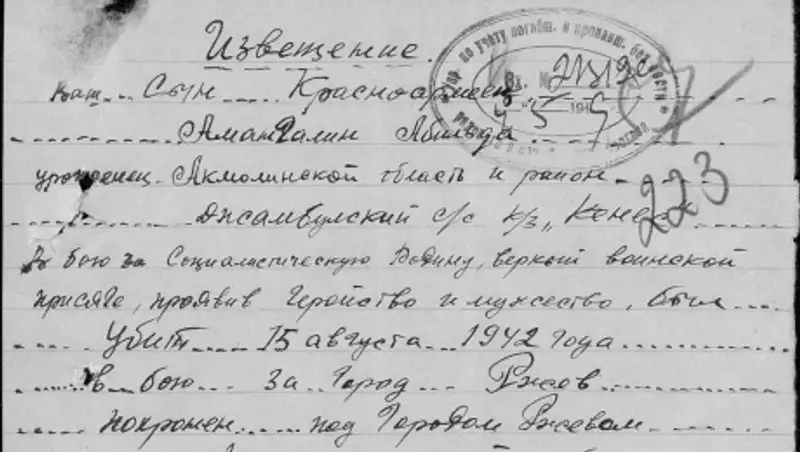 Извещение.
Ваш Сын Красноармеец
Амангалин Абильда
уроженец Акмолинской область и район
Джамбулский с/с к/з „Кенес"
223
В бою за Социалистическую Родину, верный воинской
присяге, проявив геройство и мужество, был
Убит 15 августа 1942 года
в бою за город Ржов
похоронен под городом Ржевом